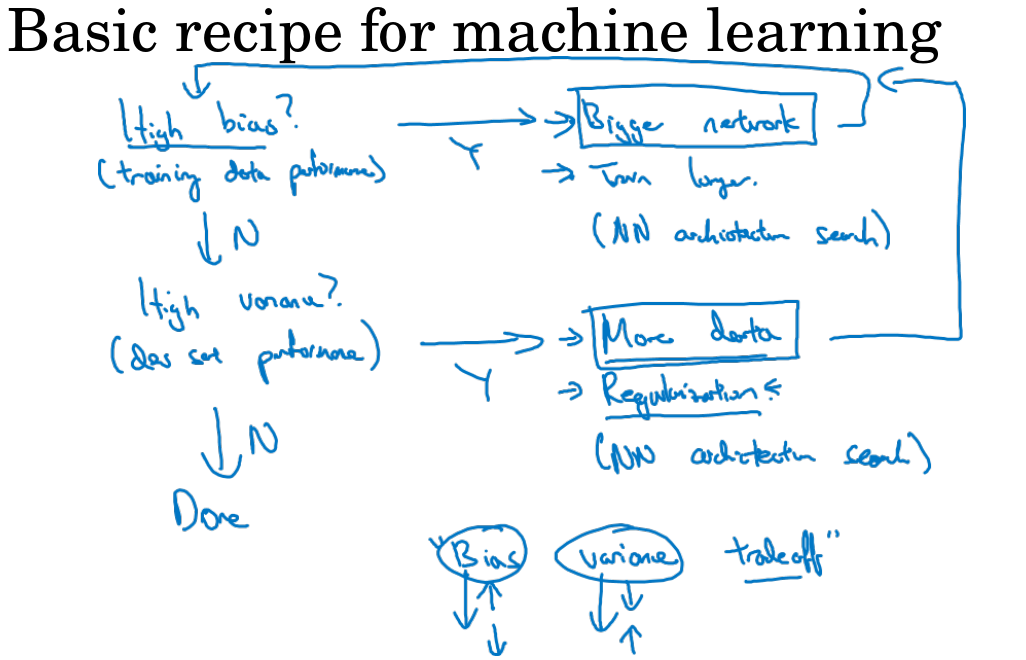 Basic recipe for machine learning
High bias? Y → Bigger network
(training data performance) → Train longer.
N (NN architecture search)
High variance?
(dev set performance) Y → More data
→ Regularization ←
N (NN architecture search)
Done
"Bias variance tradeoff"